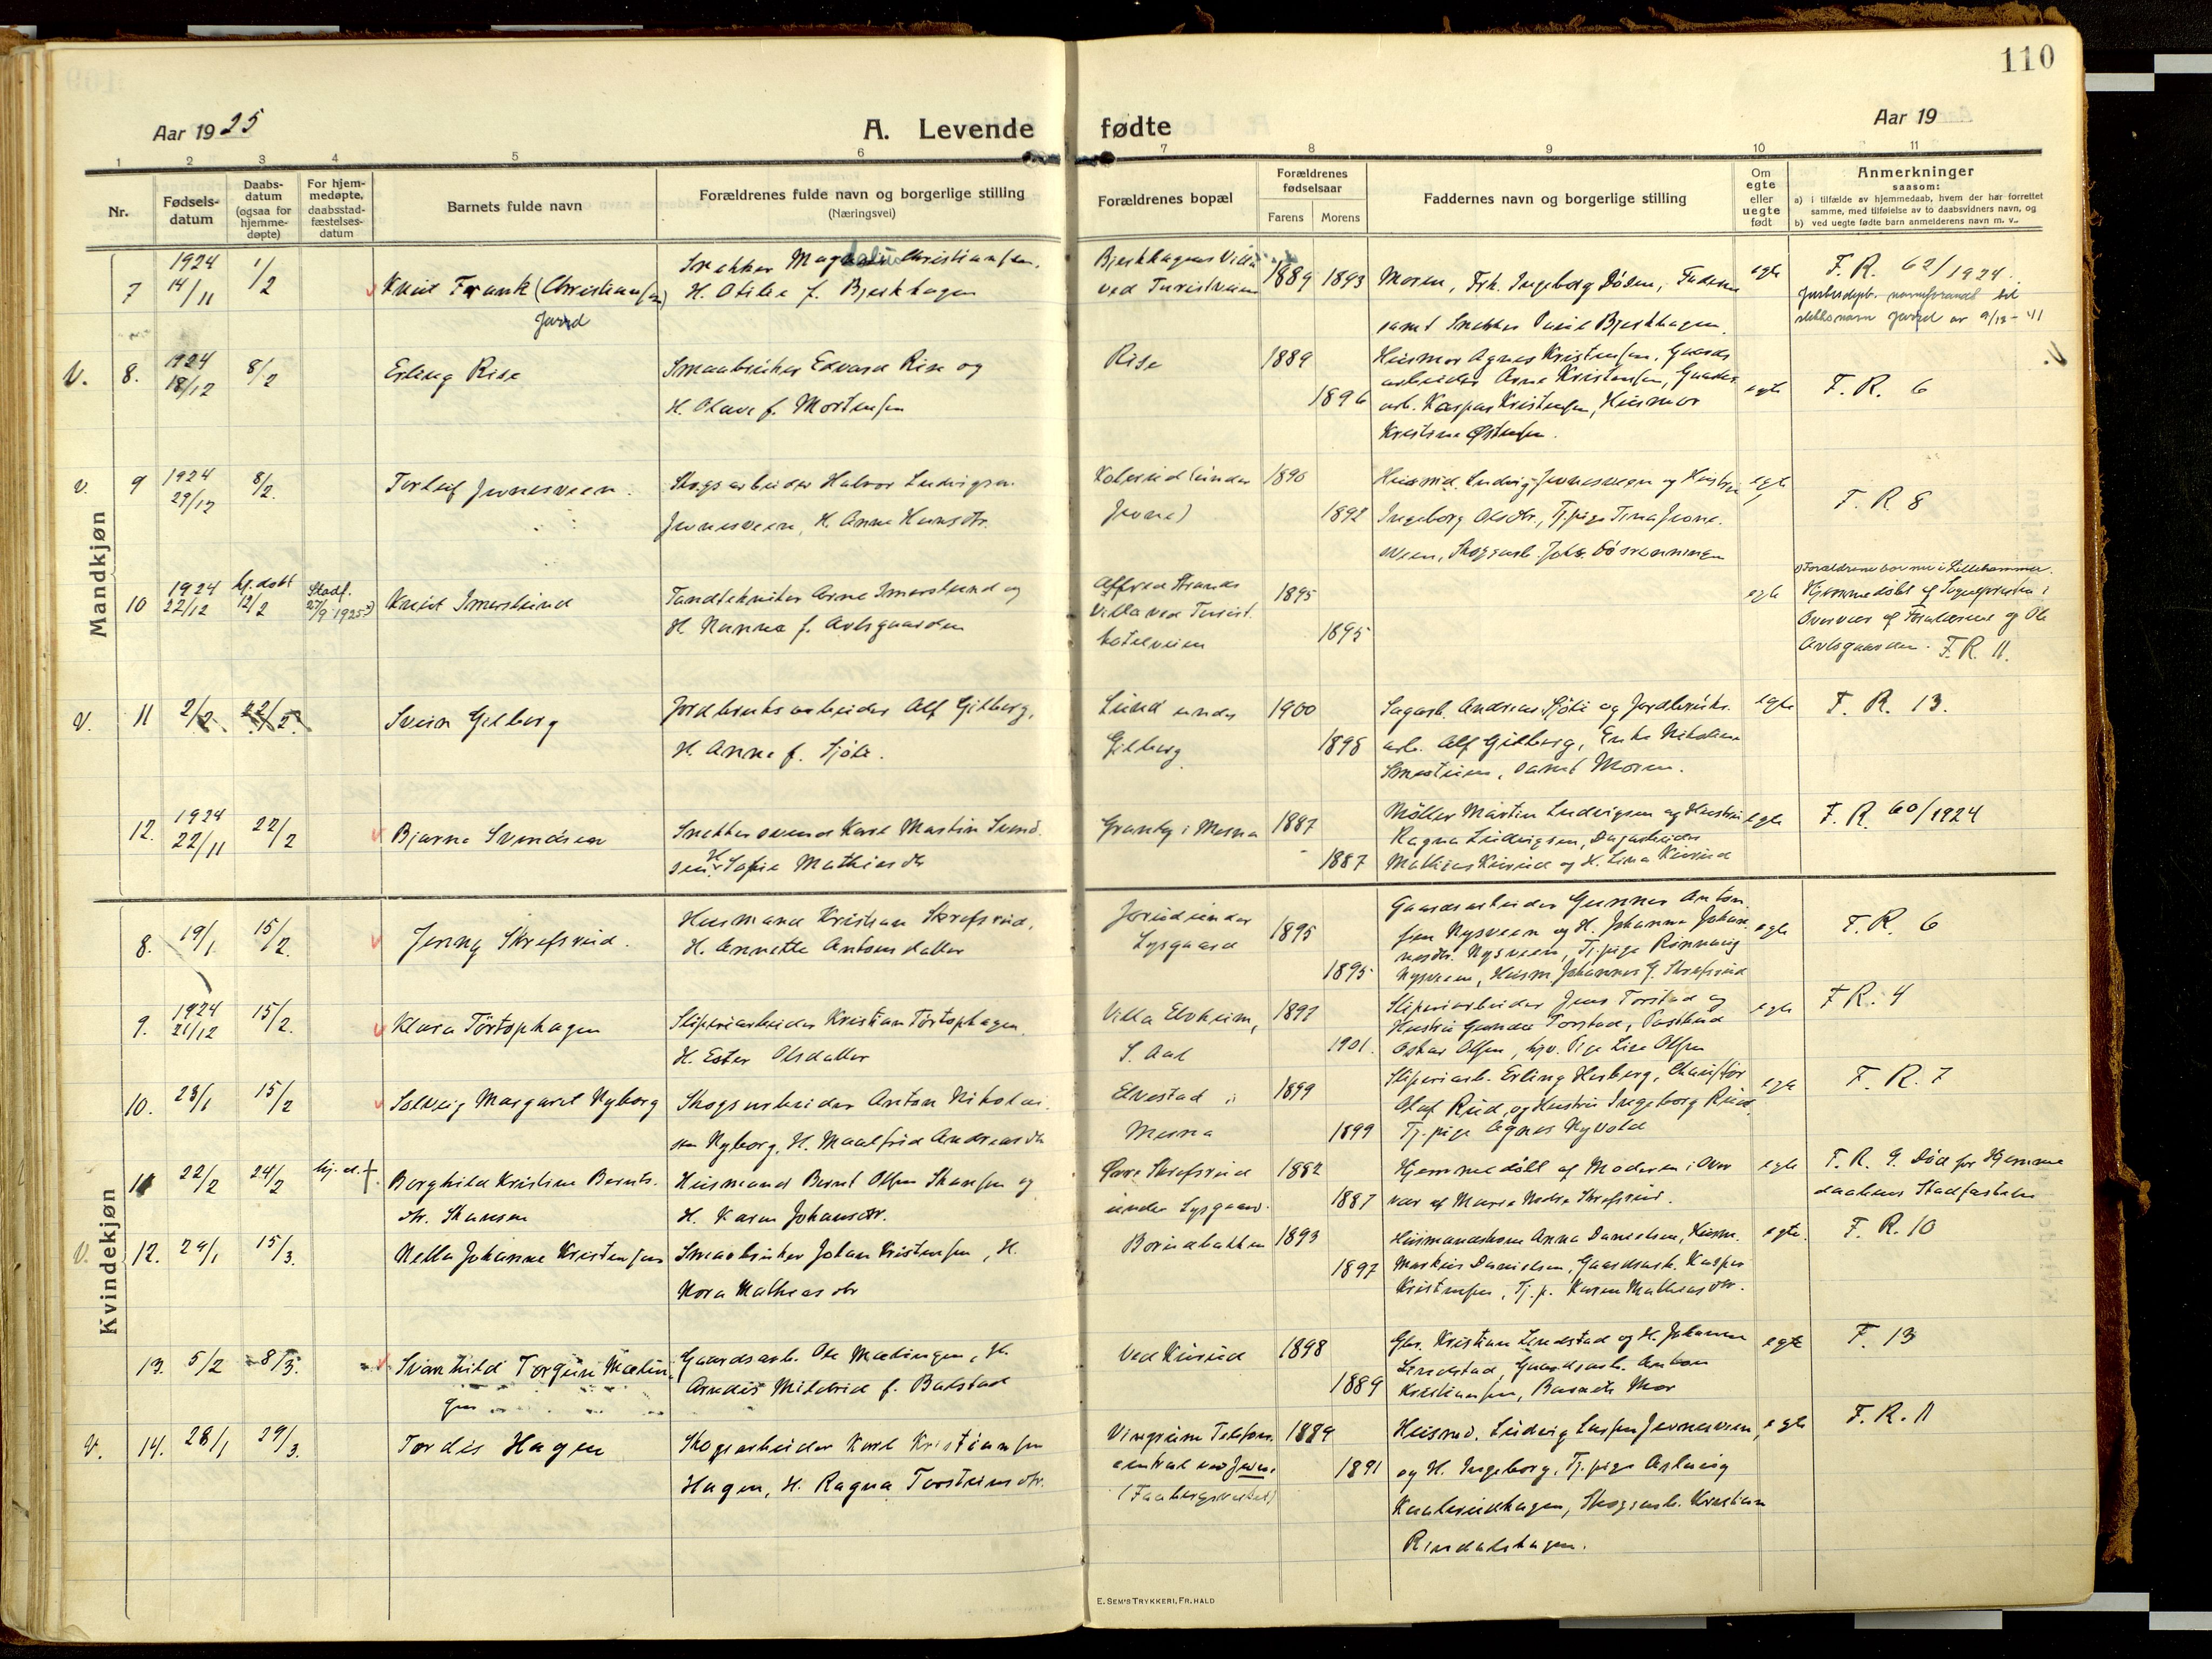 110
Aar 1925
A. Levende fødte
Aar 19
1 2 3 4 5 6 7 8 9 10 11
Nr.
Fødsels-
datum
Daabs-
datum
(ogsaa for
hjemme-
døpte)
For hjem-
medøpte,
daabsstad-
fæstelses-
datum
Barnets fulde navn
Forældrenes fulde navn og borgerlige stilling
(Næringsvei)
Forældrenes bopæl
Forældrenes
fødselsaar
Farens Morens
Faddernes navn og borgerlige stilling
Om
egte
eller
uegte
født
Anmerkninger
saasom:
a) i tilfælde av hjemmedaab, hvem der har forrettet
samme, med tilføielse av to daabsvidners navn, og
b) ved uegte fødte barn anmelderens navn m. v.
Mandkjøn
7
1924
14/11
1/2
Knut Frank (Christiansen)
Snekker Christiansen,
H. Otilie f. Bjerkhagen
Bjerkhagens Villa
ved Turistveien
1889 1893
Moren, Frk. Ingeborg Døsen, Faderen
samt Snekker Bjerkhagen.
egte
F. R. 62/1924.
V. 8.
1924
18/12
8/2
Erling Rise
Smaabruker Edvard Rise og
H. Olava f. Mortensen
Rise
1889
1896
Husmor Agnes Kristensen, Gaards
arbeider Arne Kristensen, Gaards
arb. Kaspar Kristensen, Husmor
Kristine Østensen.
egte
F. R. 6
V. 9
1924
29/12
8/2.
Torleif Jevnesveen.
Skogsarbeider Halvor Ludvigsen
Jevnesveen, H. Anna Hansdtr.
Kolerud (under
Jevne)
1890
1892
Husmd. Ludvig Jevnesveen og Hustru
Ingeborg Olsdtr., Tj.pige Tina Jevne-
sveen, Skogsarb.
egte
F. R. 8
10
1924
22/12
hj. døbt
12/2
Stadf.
27/9 1925
Knut Imerslund
Tandtekniker Arne Imerslund og
H. Nanna f. Avlsgaarden
Alfred Strands
Villa ved Turist
hotelveien
1895
1895
egte
Forældrene bor nu i Lillehammer.
Hjemmedøbt af Sognepresten i
Overvær af Forældrene og Ole
Avlsgaarden. F. R. 11.
V. 11
2/2
22/2
Svein Gilberg
Jordbruksarbeider Alf Gilberg,
H. Anna f. Sjøli.
Lund under
Gilberg
1900
1898
Sagarb. Andreas Sjøli og Jordbruks-
arb. Alf Gilberg, Enke Nikoline
Smestuen, samt Moren.
egte
F. R. 13.
12.
1924
22/11
22/2
Bjarne Svendsen
Snekkersvend Karl Martin Svend-
sen, H. Sofie Mathiasdtr
Granly i Mesna
1887
1887
Møller Martin Ludvigsen og Hustru
Ragna Ludvigsen, Dagarbeider
Mathias Kurud og H. Lina Kurud
egte
F. R. 60/1924
Kvindekjøn
8.
19/1.
15/2.
Jenny Skrefsrud.
Husmand Kristian Skrefsrud,
H. Annette Antonsdatter
Jorud under
Lysgaard
1895
1895
Gaardsarbeider Gunnar Anton-
sen Nysveen og H. Johanna Johan-
nesdtr. Nysveen, Tj.pige Rønnaug
Nysveen, Husm. Johannes G. Skrefsrud
egte
F. R. 6
9.
1924
21/12
15/2.
Klara Törtophagen
Sliperiarbeider Kristian Törtophagen,
H. Ester Olsdatter
Villa Elvheim,
S. Aal
1897
1901.
Sliperiarbeider Jens Torstad og
Hustru Gunda Torstad, Postbud
Oskar Olsen, hjv. Pige Lise Olsen
egte
F. R. 4
10.
23/1
15/2
Solveig Margaret Nyborg
Skogsarbeider Anton Nikolai-
sen Nyborg, H. Maalfrid Andreasdtr
Elvestad i
Mesna
1899
1899
Sliperiarb. Erling Herberg, Chauffør
Olaf Rud, og Hustru Ingeborg Rud,
Tj.pige Agnes Nyvold
egte
F. R. 7
11
22/2
24/2
hj. d. †.
Borghild Kristine Bernts-
dtr. Skansen
Husmand Bernt Olsen Skansen og
H. Karen Johansdtr.
Øvre Skrefsrud
under Lysgaard.
1882
1887
Hjemmedøbt af Moderen i Over
vær af Marie Nedre Skrefsrud.
egte
F. R. 9. Død før Hjemme
daabens Stadfæstelse
V. 12.
29/1
15/3.
Nella Johanne Kristensen
Smaabruker Johan Kristensen, H.
Nora Mathiasdtr
Borudbakken
1893
1897
Husmandskone Anna Danielsen, Husm.
Markus Danielsen, Gaardsarb. Kaspar
Kristensen, Tj. p. Karen Mathiasdtr.
egte.
F. R. 10
13.
5/2
8/3.
Svanhild Torgun Mælin-
gen
Gaardsarb. Ole Mælingen, H.
Arndis Mildrid f. Bakstad
Ved Kurud
1898
1889
Gbr. Kristian Lindstad og H. Johanne
Lindstad, Gaardsarb. Anton
Kristiansen, Barnets Mor
egte
F. 13
V. 14.
28/1
29/3.
Tordis Hagen
Skogsarbeider Karl Kristiansen
Hagen, H. Ragna Torsteinsdtr.
Vingrum Telefon-
central ved Jevne
(Faabergsveten)
1889
1891
Husmd. Ludvig Larsen Jevnesveen,
og H. Ingeborg, Tj. pige Aslaug
Kaalerudhagen, Skogsarb. Kristian
Rindalshagen.
egte
F. R. 11
E. SEM'S TRYKKERI, FR.HALD